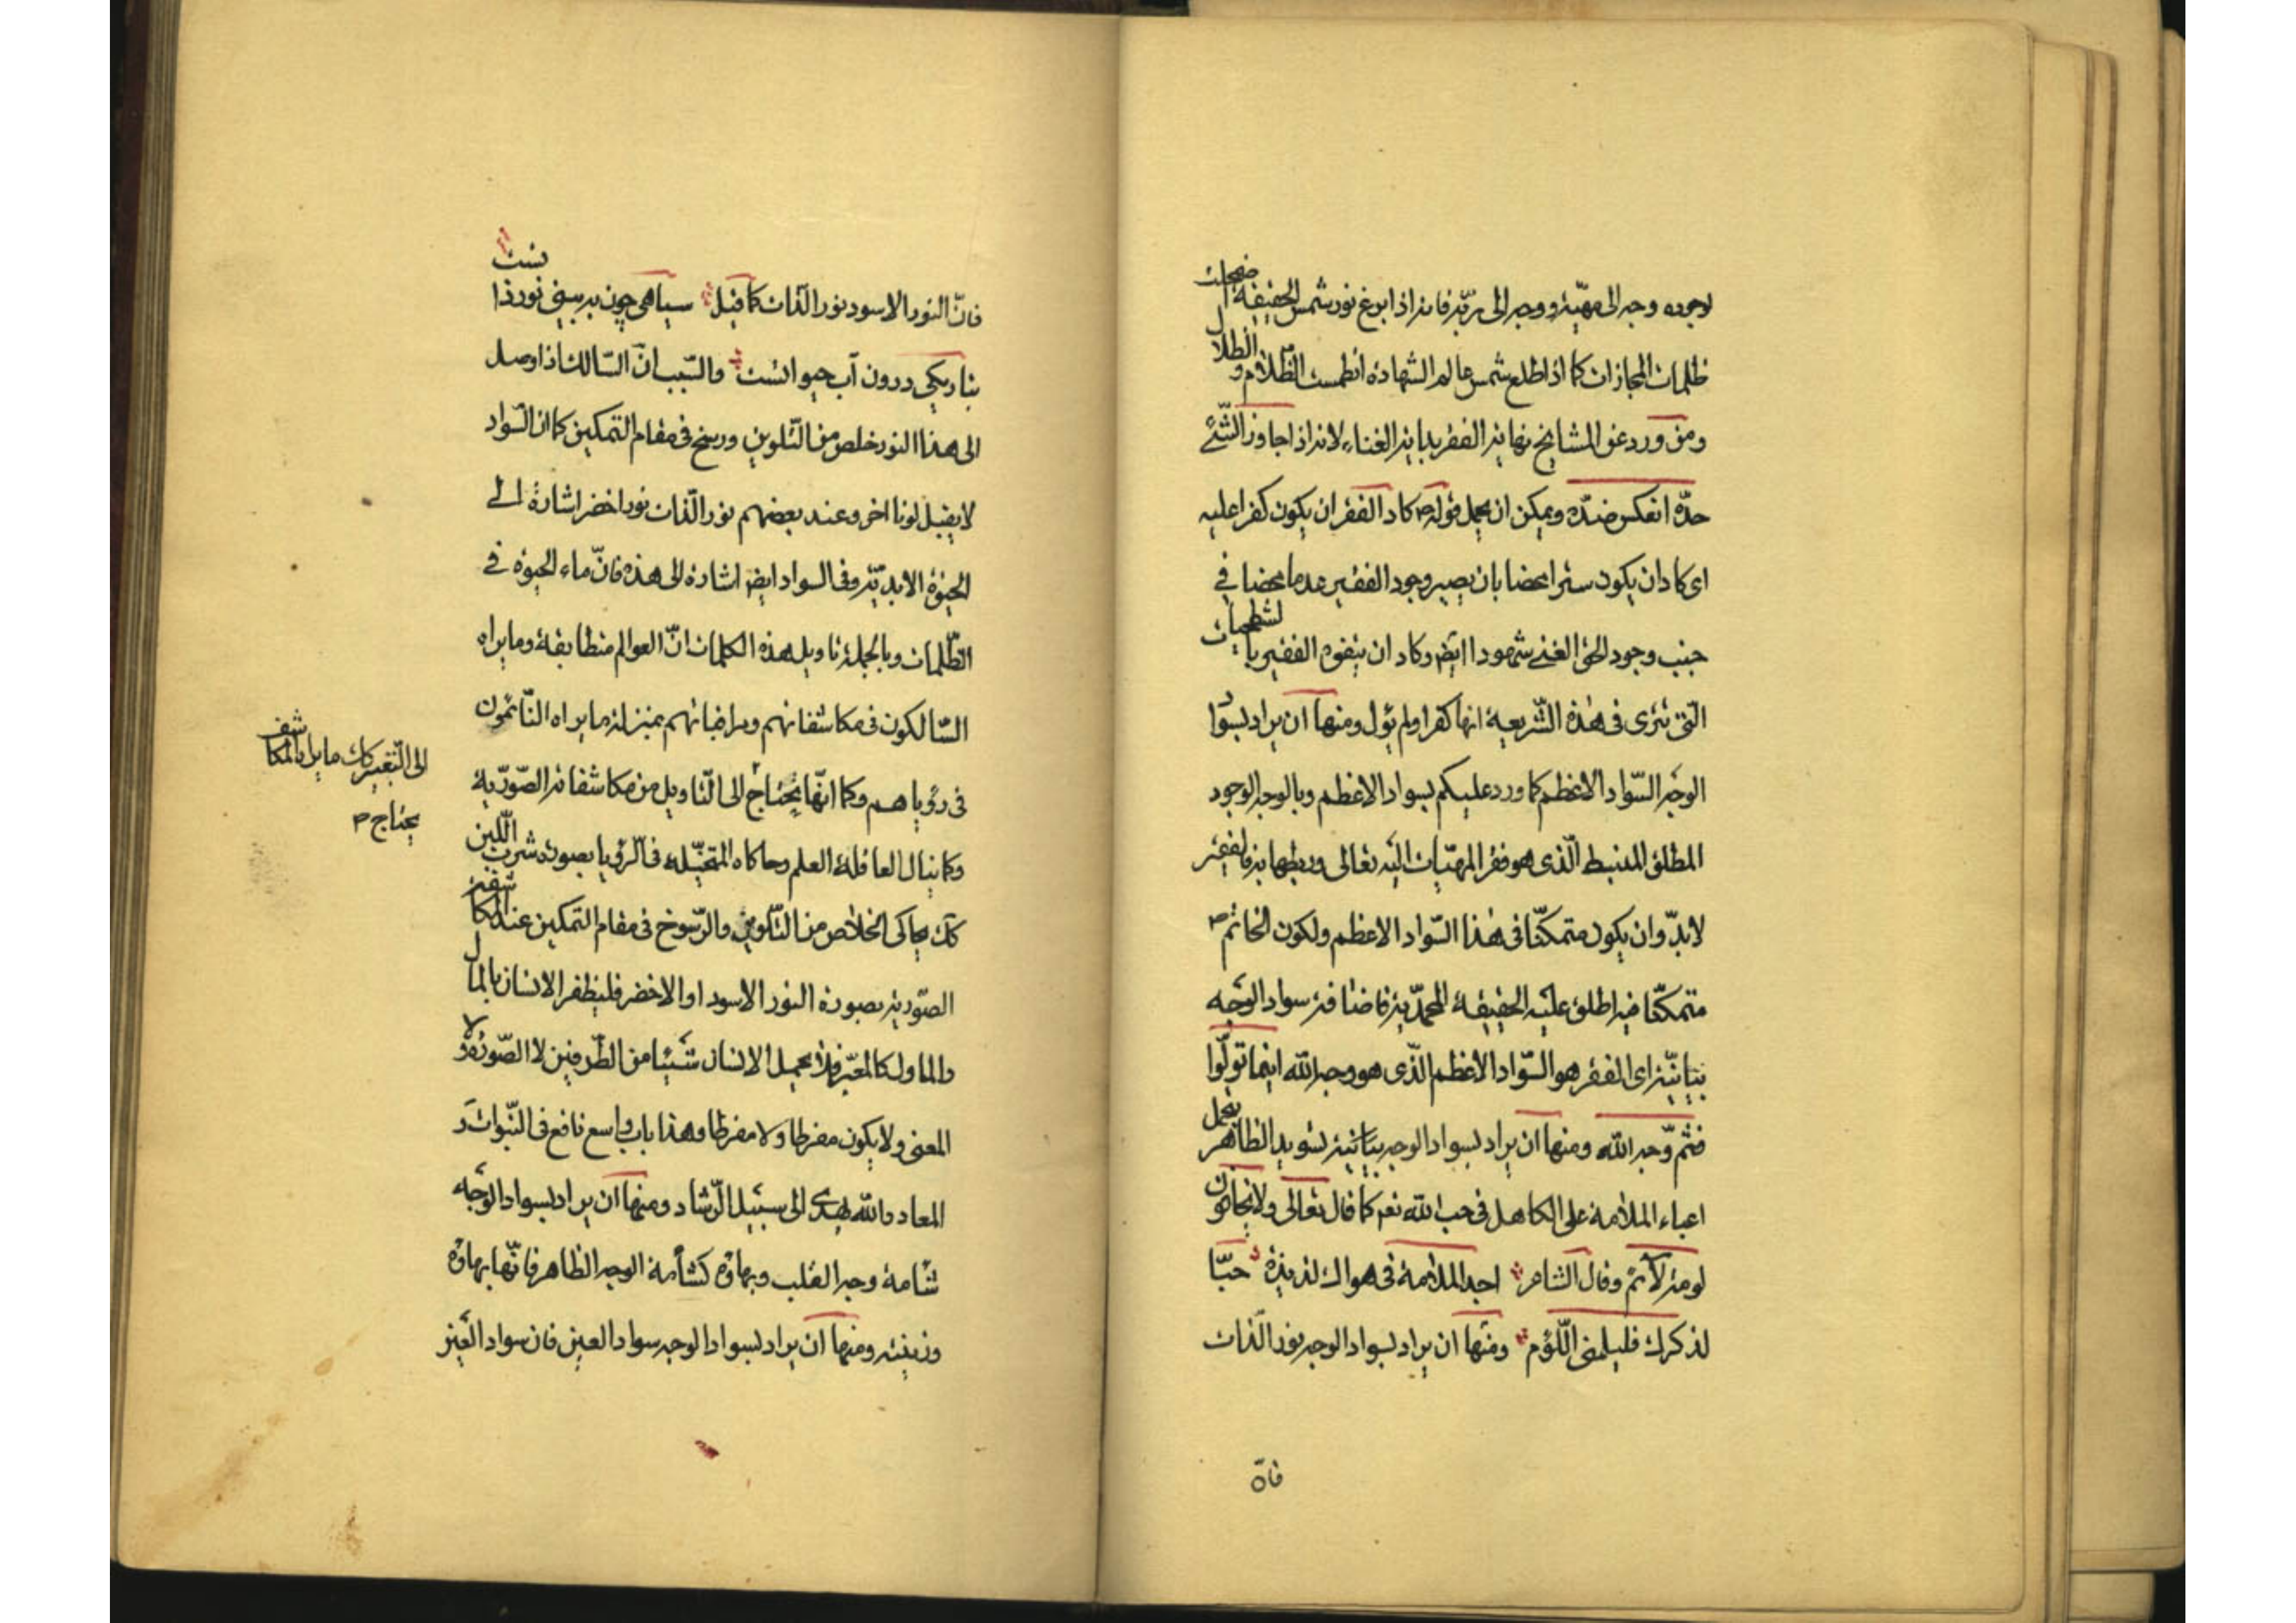 لوجوده وجه الى مهيّة ووجه الى ربّه فانه اذا بزغ نور شمس الحقيقة اضمحلت
ظلمات المجازات كما اذا طلع شمس عالم الشهادة انطمست الظّلام و الظلال
ومن ورد عن المشايخ نهاية الفقر بداية الغناء لانه اذا جاوز الشّئ
حدّه انعكس ضدّه ويمكن ان يحمل قوله ص كاد الفقر ان يكون كفرا عليه
اى كاد ان يكون سترا محضا بان يصير وجود الفقير عدما محضا فى
جنب وجود الحق الغنى شهودا ايض وكاد ان يتفوه الفقير بالشطحيات
التى ترى فى هذة الشّريعة انها كفرا ولم يؤل ومنها ان يراد بسوا
الوجه السّواد الاعظم كما ورد عليكم بسواد الاعظم وبالوجه الوجود
المطلق المنبسط الّذى هو فقر المهيّات اليه تعالى وربطها به فالفقير
لابدّ وان يكون متمكنّا فى هذا السّواد الاعظم ولكون الخاتم ص
متمكنّا فيه اطلق عليه الحقيقة المحمّدية فاضافة سواد الوجه
بيانيّة اى الفقر هو السّواد الاعظم الّذى هو وجه الله اينما تولّوا
فثمّ وجه الله ومنها ان يراد بسواد الوجه بيانيّة تسويد الظاهر بتحمل
اعباء الملامة على الكاهل فى حب الله نعم كما قال تعالى ولا يخافون
لومة لائم وقال الشاعر اجد الملامة فى هواك لذيذة حبّا
لذكرك فليلمنى اللّوّم ومنها ان يراد بسواد الوجه نور الذّات
فانّ
فانّ النور الاسود نور الذّات كما قيل سياهى چون ببينى نور ذاتست
بتاريكى درون آب حيوانست والسّبب انّ السّالك اذا وصل
الى هذا النور خلص من التّلوين ورسخ فى مقام التمكين كما ان السّواد
لا يقبل لونا اخر وعند بعضهم نور الذّات نور اخضر اشارة الى
الحيوة الابديّة وفى السواد ايض اشارة الى هذه فانّ ماء الحيوة فى
الظّلمات وبالجملة تاويل هذه الكلمات انّ العوالم متطابقة وما يراه
السّالكون فى مكاشفاتهم ومراقباتهم بمنزلة ما يراه النّائمون
فى رؤياهم وكما انّها يحتاج الى التّاويل من مكاشفاته الصّوريّة
الى التّعبير كك ما يراه بالمكاشفه
يحتاج ص
وكما ينال العاقلة العلم وحاكاه المتخيّلة فى الرؤيا بصورة شرب اللّبن
كك يحاكى الخلاص من التّلوين والرّسوخ فى مقام التمكين عند المكاشفة
الصّورية بصورة النور الاسود او الاخضر فليظفر الانسان بالمال
والماول كالمعبّر فلا يحمل الانسان شيئا من الطّرفين لا الصّورة و لا
المعنى ولا يكون مفرطا ولا مفرطا وهذا باب واسع نافع فى النّبوات و
المعاد والله يهدى الى سبيل الرّشاد ومنها ان يراد بسواد الوجه
شامة وجه القلب وبهاؤه كشأمة الوجه الظاهر فانّها بهاؤه
وزينته ومنها ان يراد بسواد الوجه سواد العين فان سواد العين